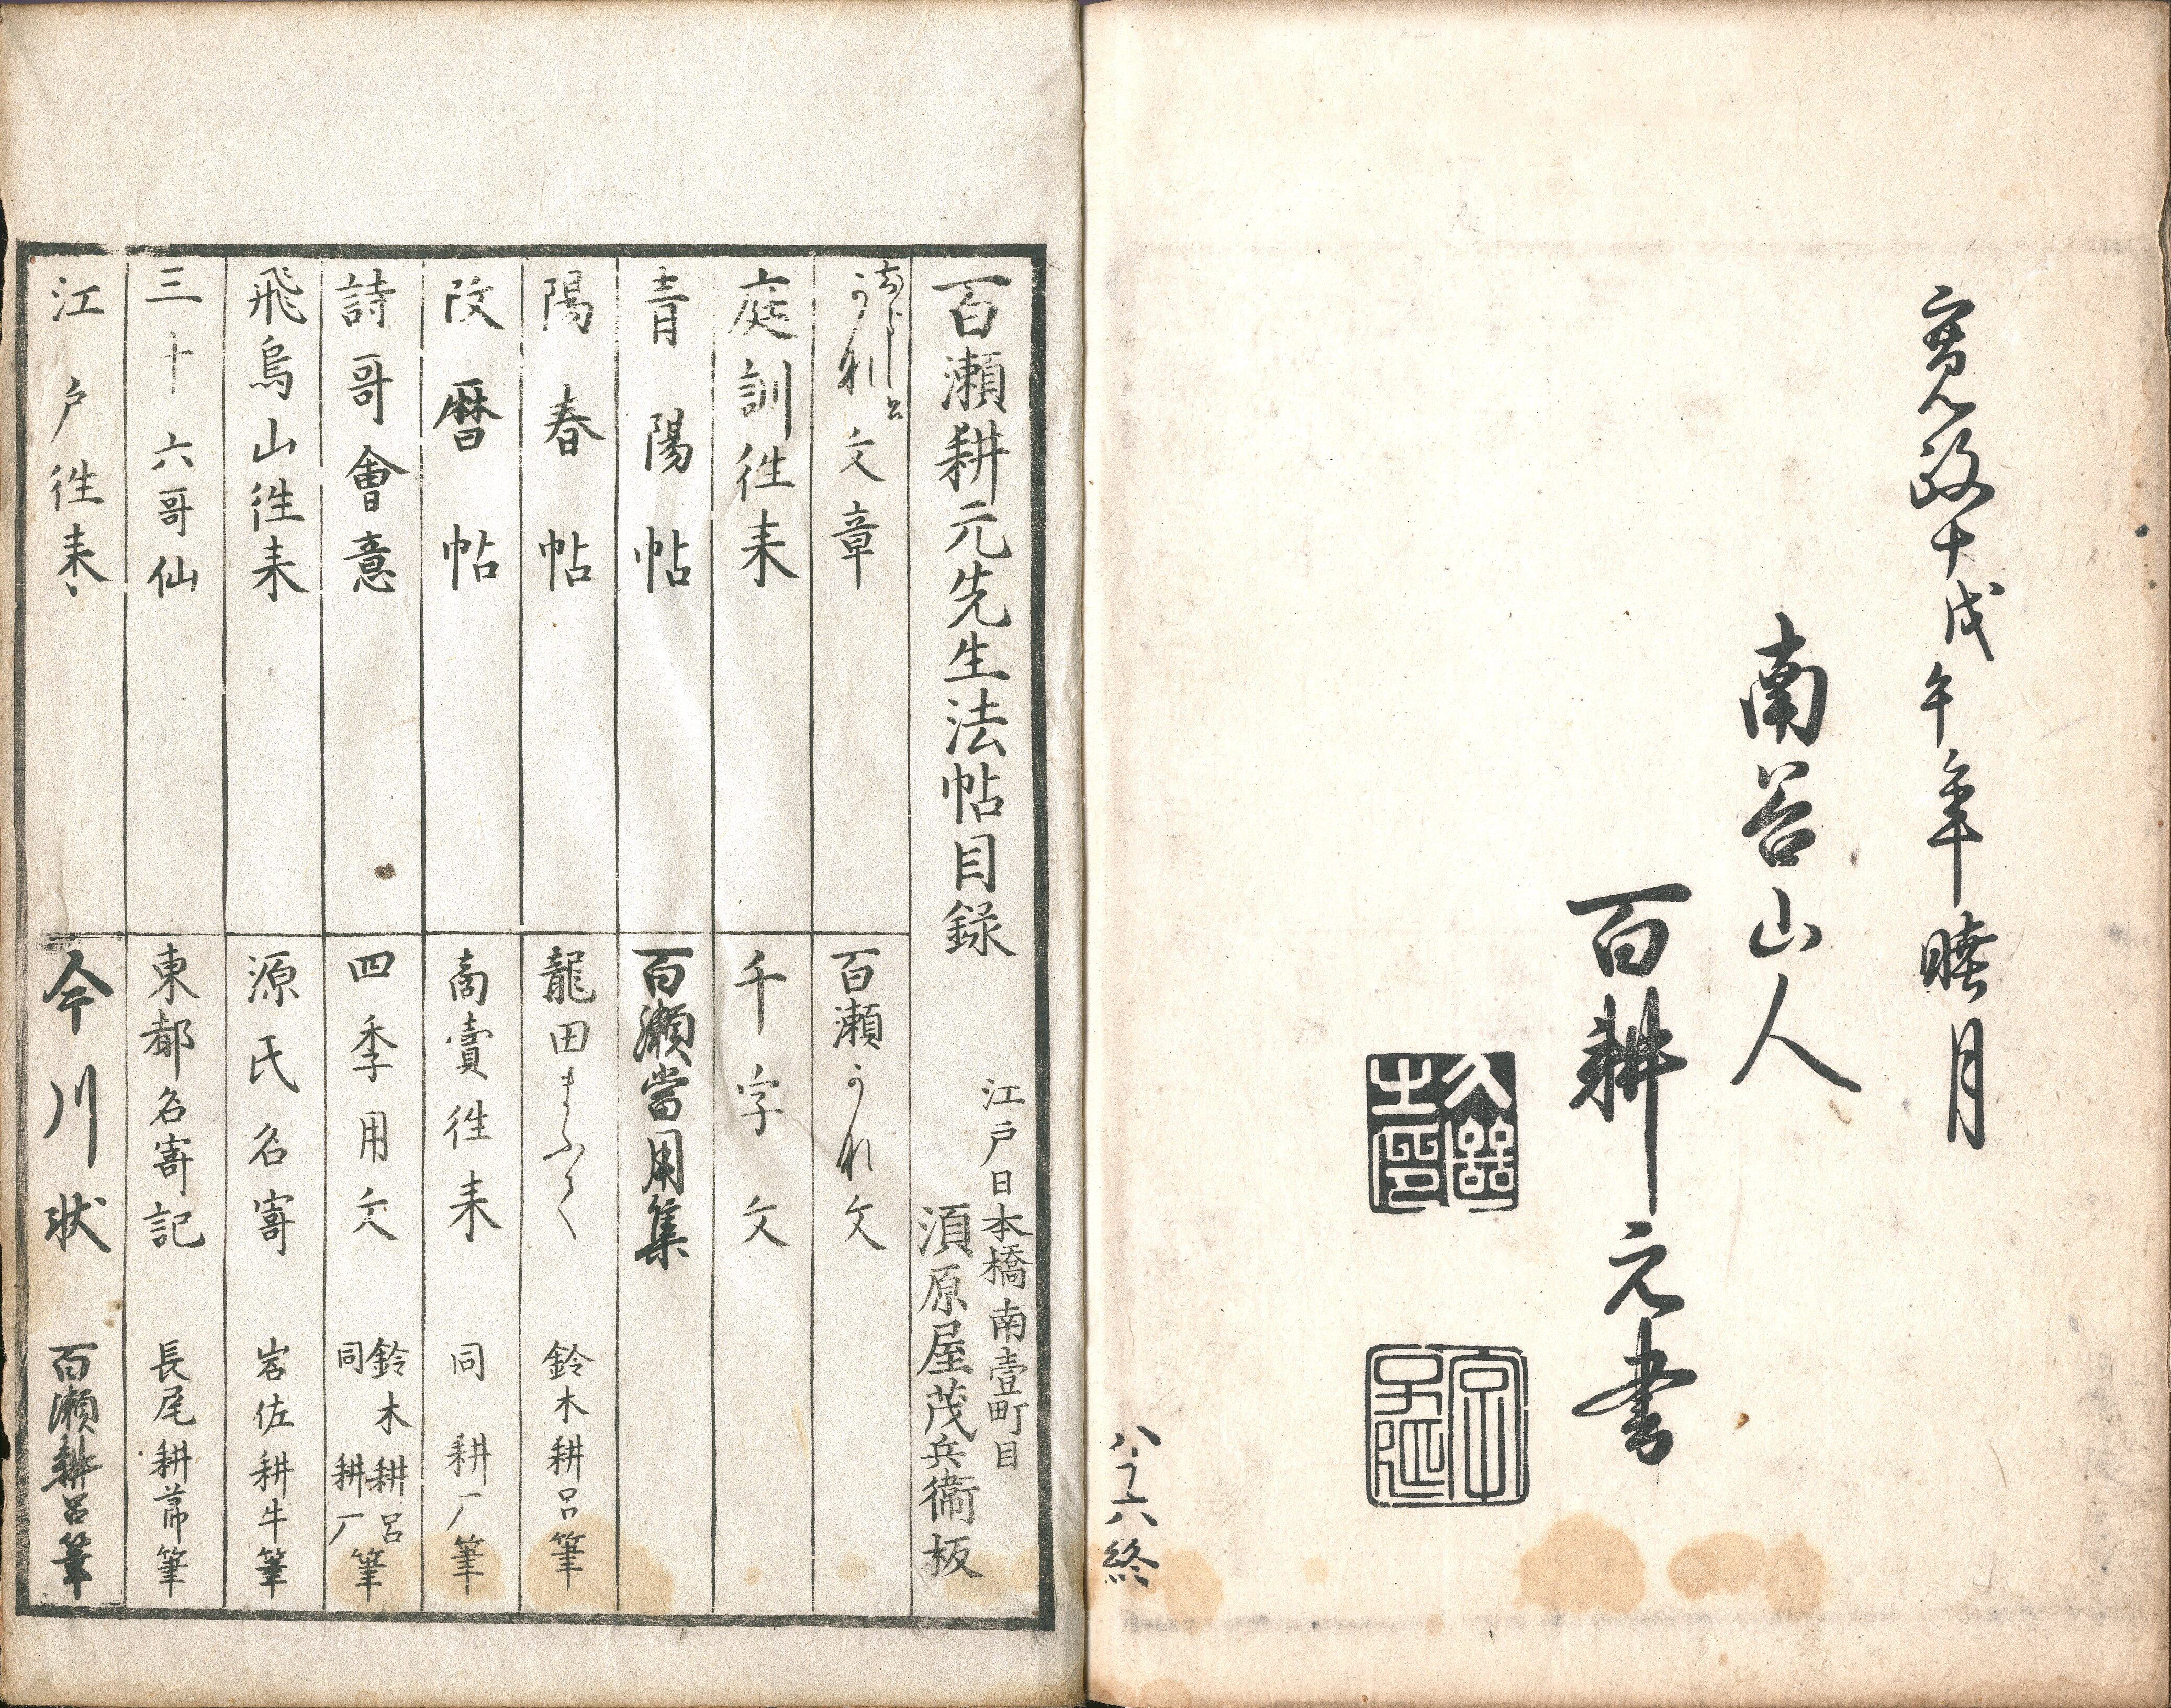 寛政十戊午年睦月
南谷山人
百耕元書
八ノ六終
百瀬耕元先生法帖目録
江戸日本橋南壹町目
須原屋茂兵衛板
うれ文章
百瀬うれ文
庭訓往来
千字文
青陽帖
百瀬當用集
陽春帖
龍田まふて
鈴木耕呂筆
改暦帖
商賣往来
同 耕厂筆
詩哥會意
四季用文
鈴木耕呂
同 耕厂筆
飛鳥山往来
源氏名寄
岩佐耕牛筆
三十六哥仙
東都名寄記
長尾耕 筆
江戸往来
今川状
百瀬耕呂筆